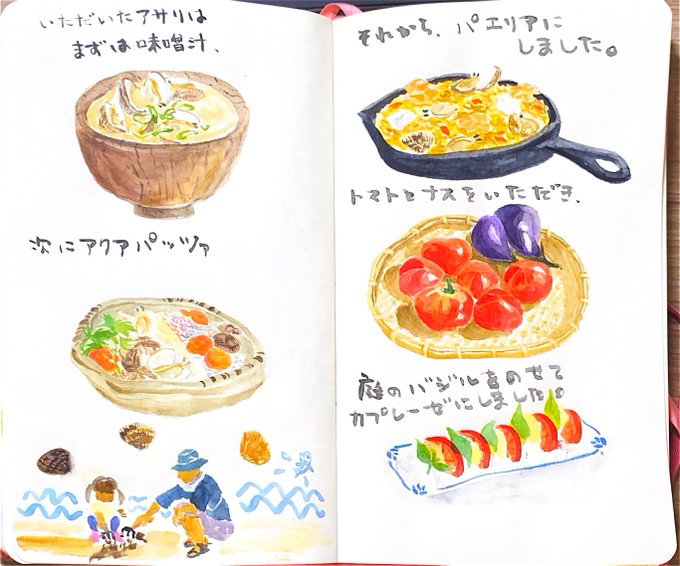 いただいたアサリは
まずは味噌汁、
次にアクアパッツァ
それから、パエリアに
しました。
トマトとナスをいただき、
庭のバジルをのせて
カプレーゼにしました。